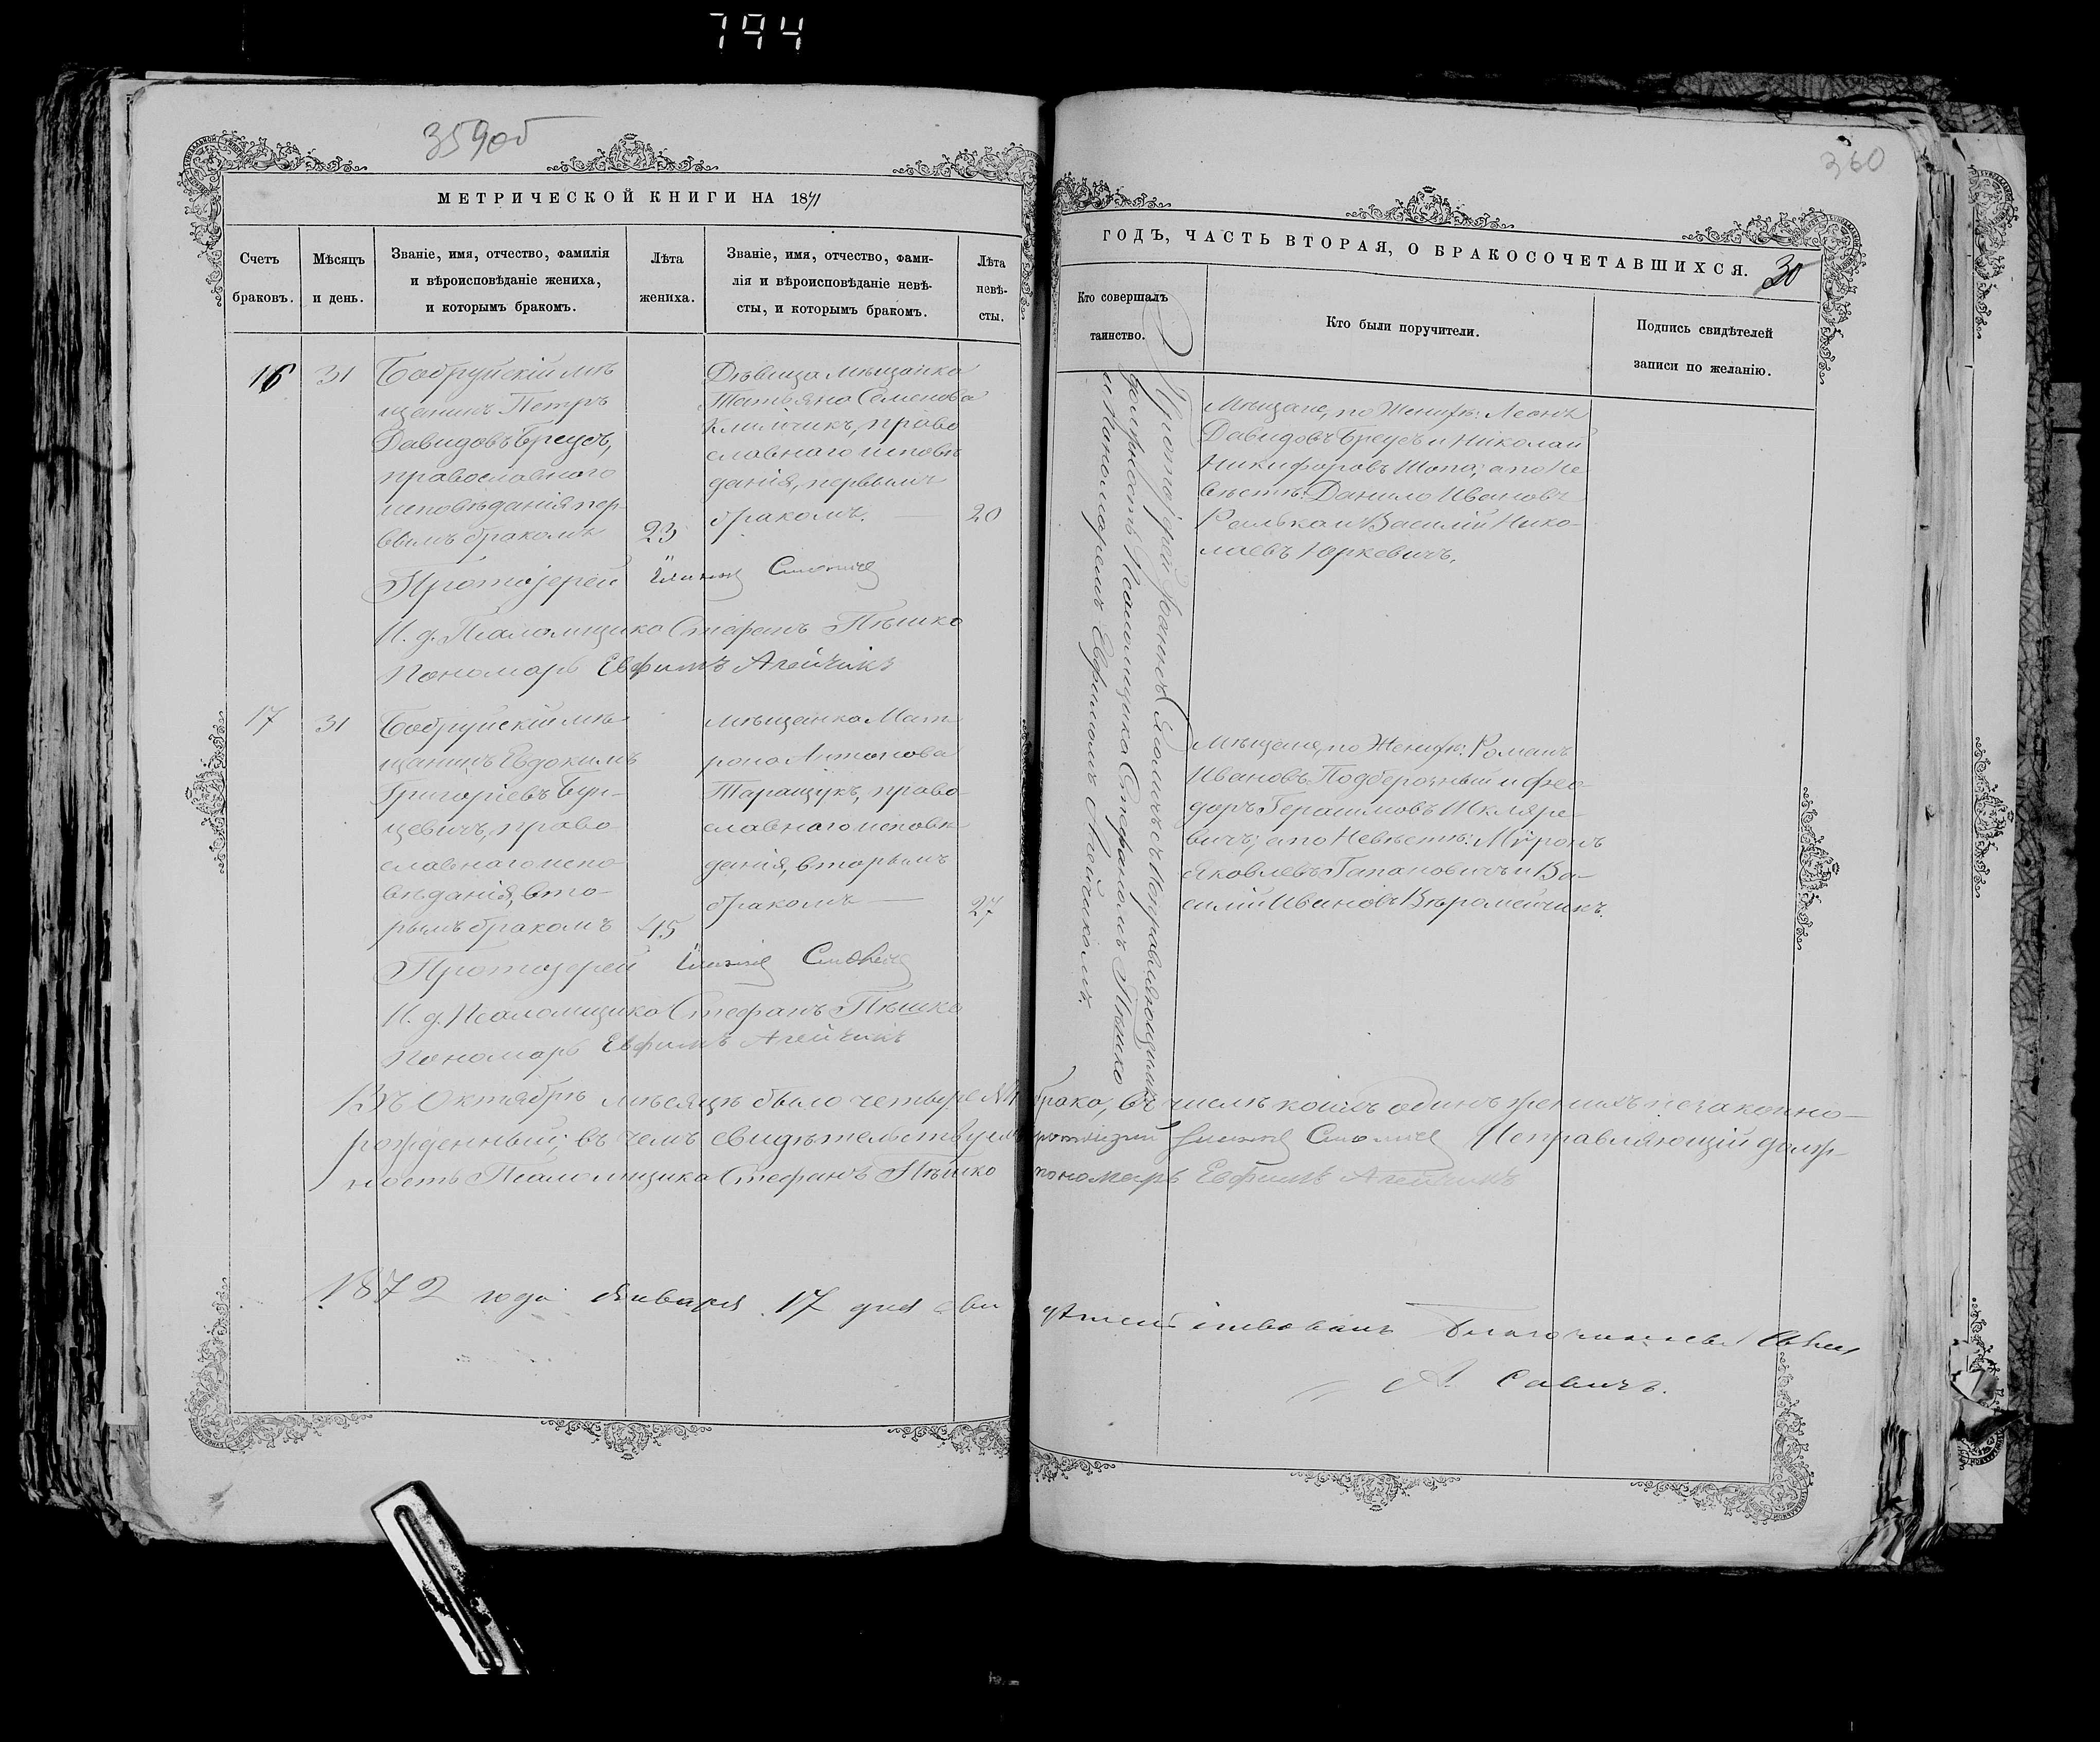 794
359об
МЕТРИЧЕСКОЙ КНИГИ НА 1871
Счетъ
браковъ.
Мѣсяцъ
и день.
Званіе, имя, отчество, фамилія
и вѣроисповѣданіе жениха,
и которымъ бракомъ.
Лѣта
жениха.
Званіе, имя, отчество, фами-
лія и вѣроисповѣданіе невѣ-
сты, и которымъ бракомъ.
Лѣта
невѣ-
сты.
16
31
Бобруйскій мѣ
щанинъ Петръ
Давидовъ Бреусъ,
православнаго
исповѣданія пер
вымъ бракомъ
23
Дѣвица мѣщанка
Татьяна Семенова
Климчикъ, право
славнаго исповѣ
данія, первымъ
бракомъ.
20
Протоіерей
И. д. Псаломщика Стефанъ Пѣшко
Пономарь Евфимъ Агейчикъ
17
31
Бобруйскій мѣ
щанинъ Евдокимъ
Григоріевъ Бун-
цевичъ, право
славнаго испо
вѣданія, вто-
рымъ бракомъ
45
мѣщанка Мат
рона Антонова
Таращукъ, право
славнаго исповѣ
данія, вторымъ
бракомъ
27
Протоіерей
И. д. Псаломщика Стефанъ Пѣшко
Пономарь Евфимъ Агейчикъ
360
ГОДЪ, ЧАСТЬ ВТОРАЯ, О БРАКОСОЧЕТАВШИХСЯ.
30
Кто совершалъ
таинство.
Кто были поручители.
Подпись свидѣтелей
записи по желанію.
Протоіерей Іоаннъ съ Исправляющимъ
должность Псаломщика Стефаномъ Пѣшко
и Пономаремъ Евфимомъ Агейчикомъ.
Мѣщане, по Женихѣ: Леонъ
Давидовъ Бреусъ и Николай
Никифоровъ Шопа; а по Не
вѣстѣ: Данило Ивановъ
и Василій Нико-
лаевъ Юркевичъ.
Мѣщане, по Женихѣ: Романъ
Ивановъ Подберозный и Ѳео
доръ Герасимовъ Шкляре-
вичъ; а по Невѣстѣ: Миронъ
Яковлевъ Гапановичъ и Ва-
силій Ивановъ
Въ Октябрѣ мѣсяцѣ было четыре №4 брака, въ числѣ коихъ одинъ женихъ незаконно-
рожденный; въ чемъ свидѣтельствуемъ Исправляющій долж-
ность Псаломщика Стефанъ Пѣшко пономарь Евфимъ Агейчикъ
1872 года Января 17 дня сви
А. Савичъ.